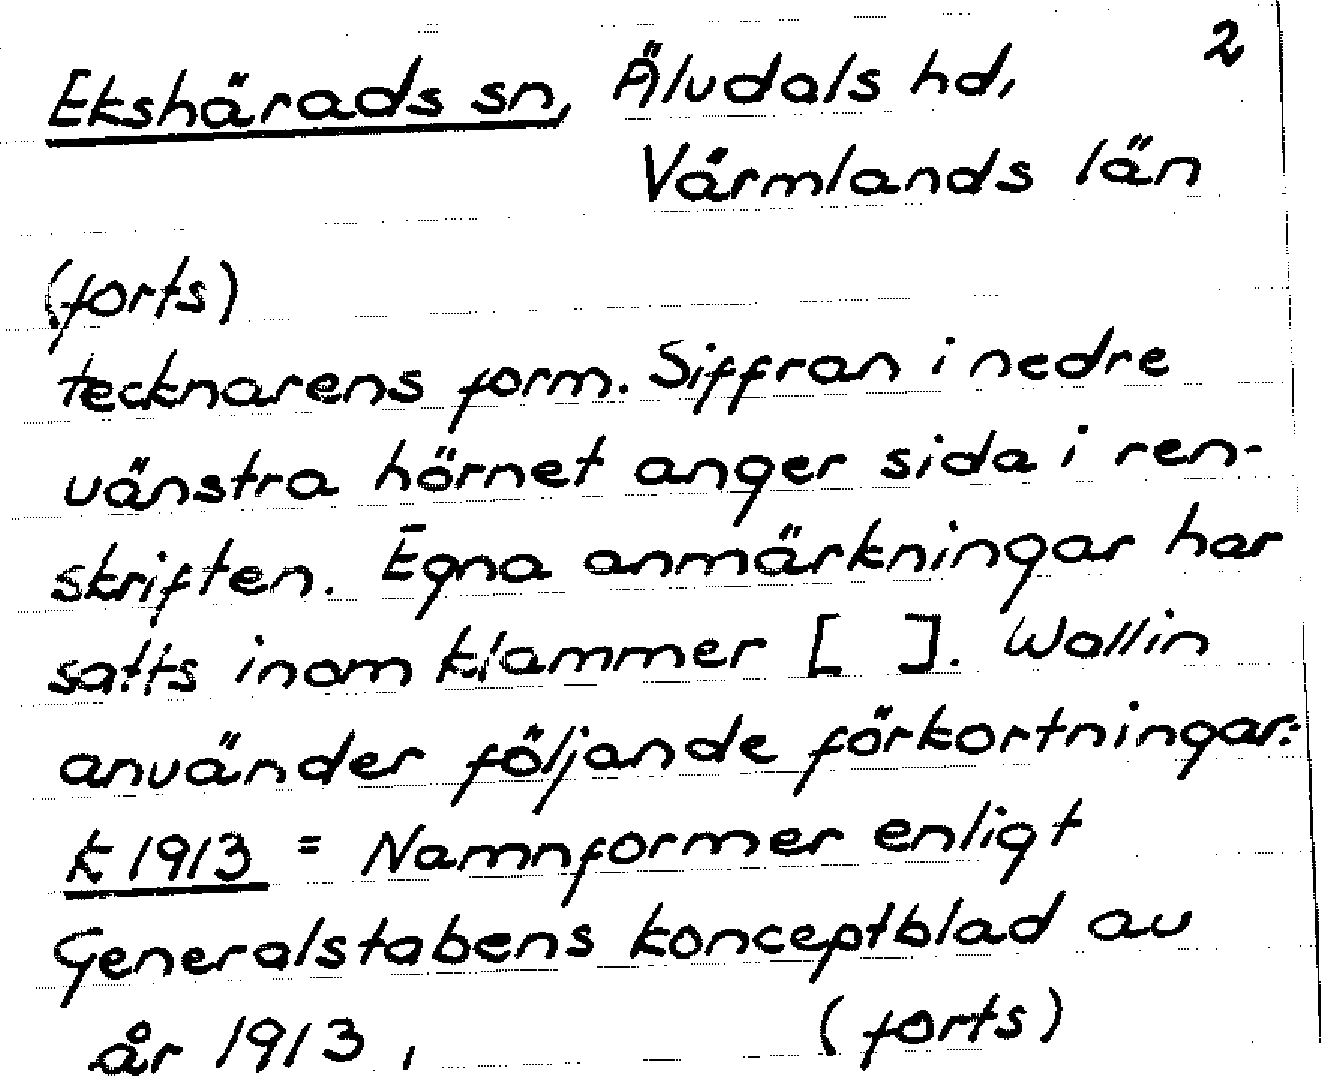 2
Ekshärads sn, Älvdals hd,
Värmlands län
(forts)
tecknarens form. Siffran i nedre
vänstra hörnet anger sida i ren-
skriften. Egna anmärkningar har
satts inom klammer [ ]. Wallin
använder följande förkortningar:
k 1913 = Namnformer enligt
Generalstabens konceptblad av
år 1913, (forts)